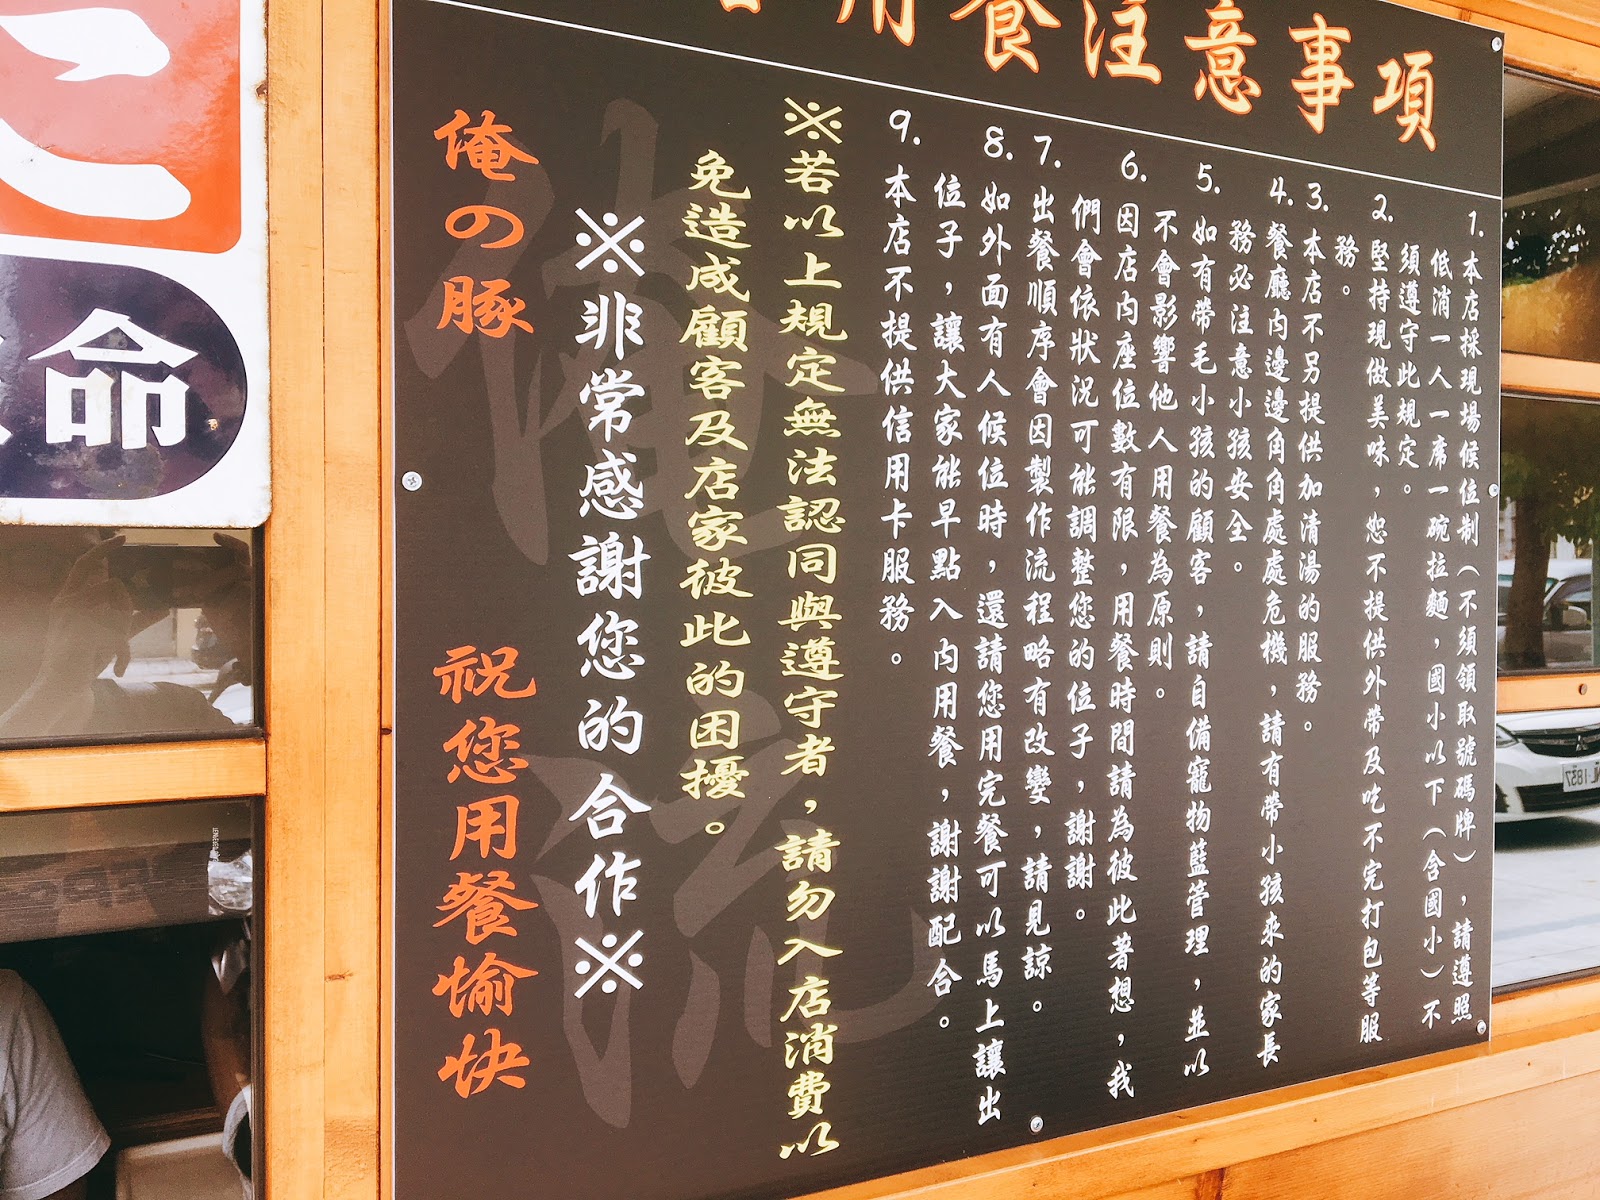 用餐注意事項
1.本店採現場候位制（不須領取號碼牌），請遵照
低消一人一席一碗拉麵，國小以下（含國小）不
須遵守此規定。
2.堅持現做美味，恕不提供外帶及吃不完打包等服
務。
3.本店不另提供加清湯的服務。
4.餐廳內邊邊角角處處危機，請有帶小孩來的家長
務必注意小孩安全。
5.如有帶毛小孩的顧客，請自備寵物籃管理，並以
不會影響他人用餐為原則。
6.因店內座位數有限，用餐時間請為彼此著想，我
們會依狀況可能調整您的位子，謝謝。
7.出餐順序會因製作流程略有改變，請見諒。
8.如外面有人候位時，還請您用完餐可以馬上讓出
位子，讓大家能早點入內用餐，謝謝配合。
9.本店不提供信用卡服務。
※若以上規定無法認同與遵守者，請勿入店消費以
免造成顧客及店家彼此的困擾。
※非常感謝您的合作※
俺の豚 祝您用餐愉快
俺流
こ
命